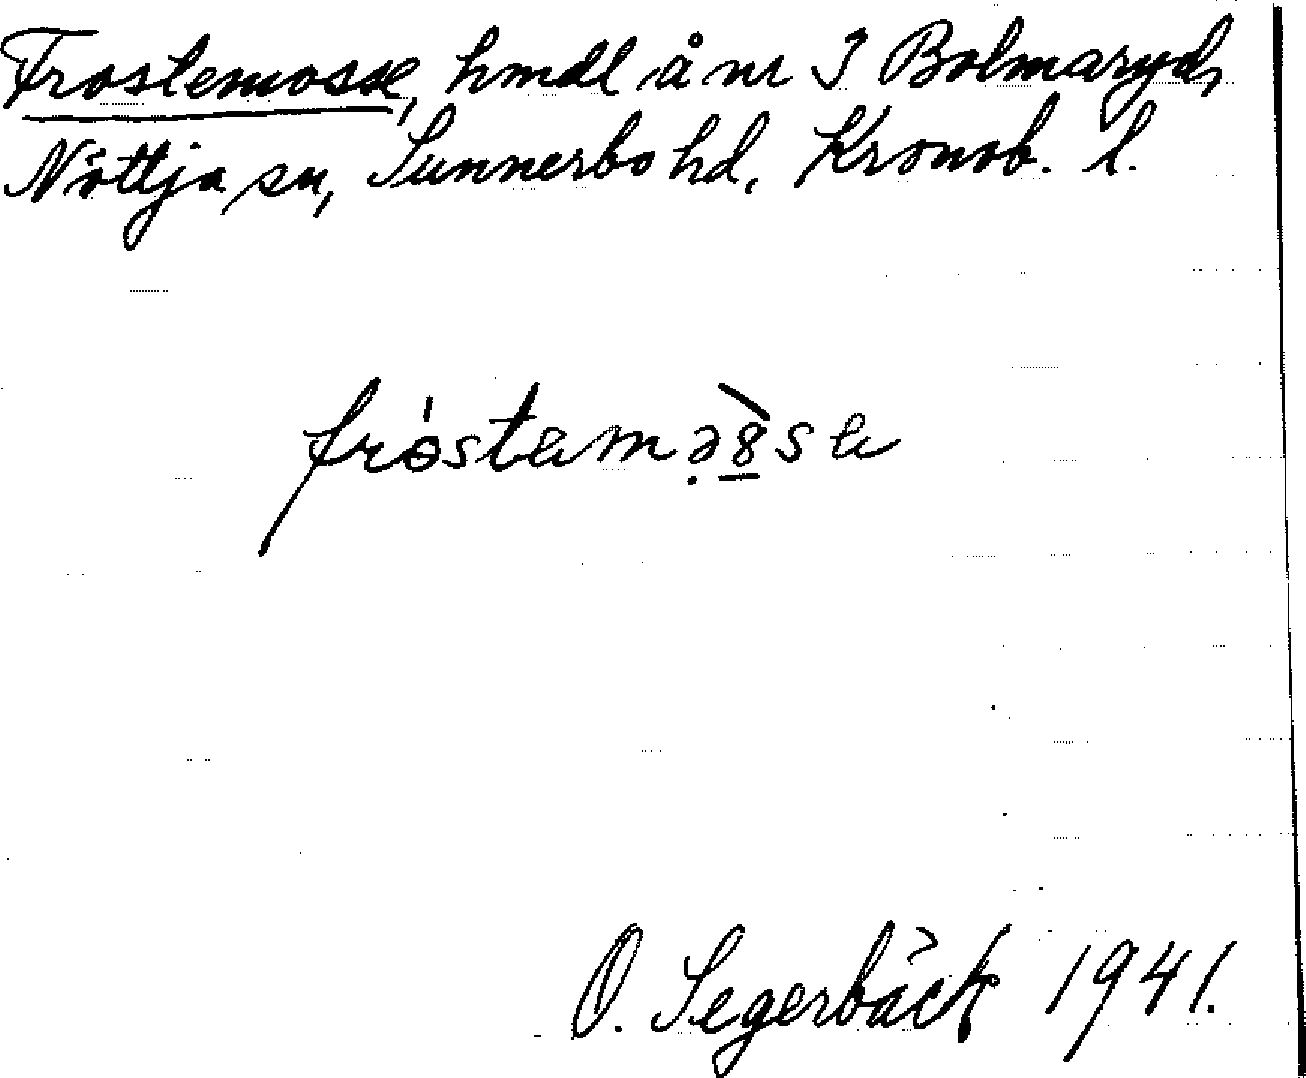 Frostemosse, hmdl å nr 3 Bolmaryd,
Nöttja sn, Sunnerbo hd, Kronob. l.
O. Segerbäck 1941.